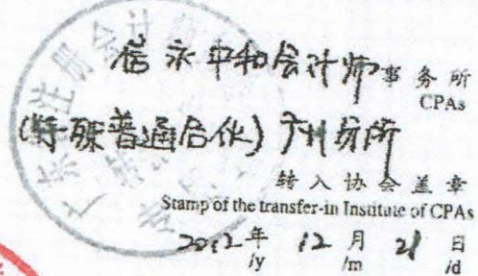 信永中和会计师事务所
CPAs
(特殊普通合伙)广州分所
转入协会盖章
Stamp of the transfer-in Institute of CPAs
2012年 12月 21日
/y /m /d